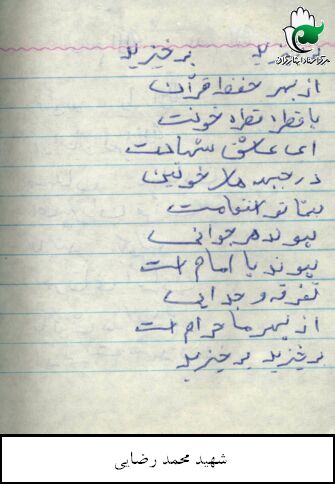 برخیزید برخیزید
از بهر حفظ قرآن
با قطره قطره خونت
ای عاشق شهادت
در جبهه های خونین
بنما تو استقامت
پیوند هر جوانی
پیوند با امام است
تفرقه و جدایی
از بهر ما حرام است
برخیزید برخیزید
شهید محمد رضایی